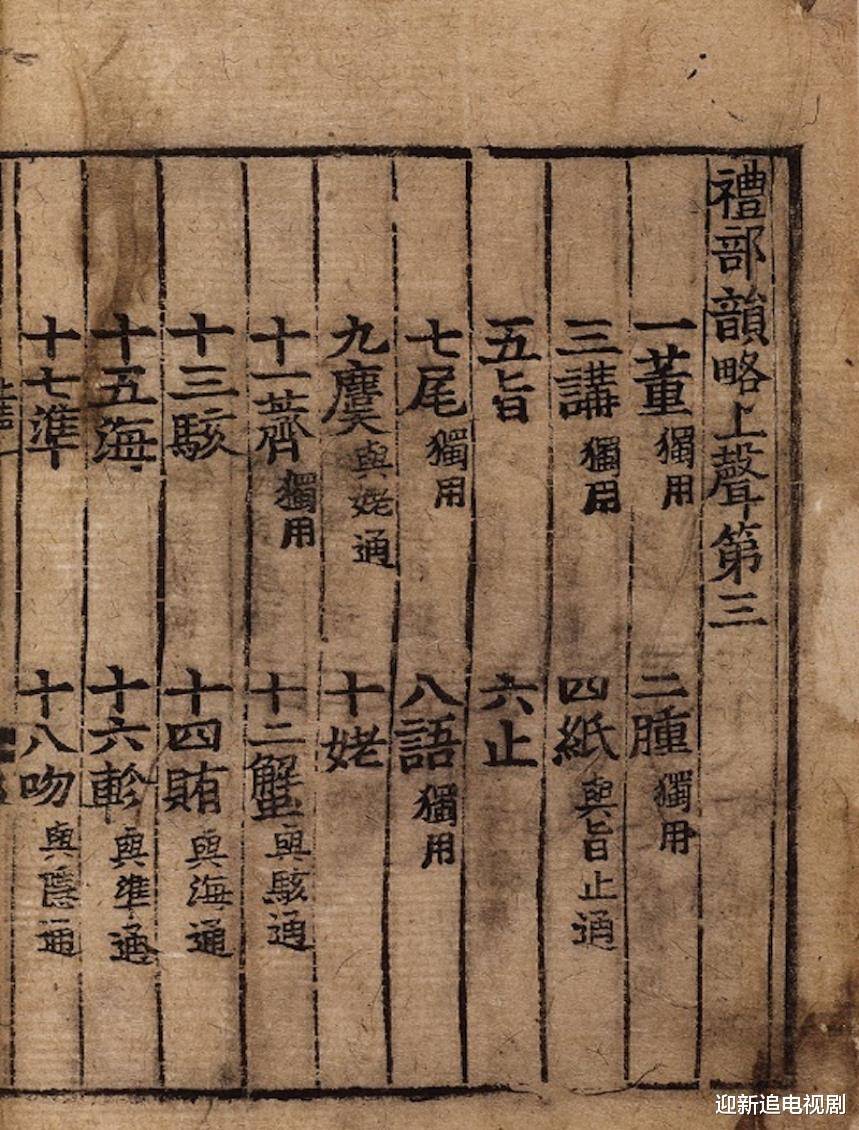 禮部韻略上聲第三
一董獨用 二腫獨用
三講獨用 四紙與旨止通
五旨 六止
七尾獨用 八語獨用
九麌與姥通 十姥
十一薺獨用 十二蟹與駭通
十三駭 十四賄與海通
十五海 十六軫與準通
十七準 十八吻與隱通
迎新追电视剧